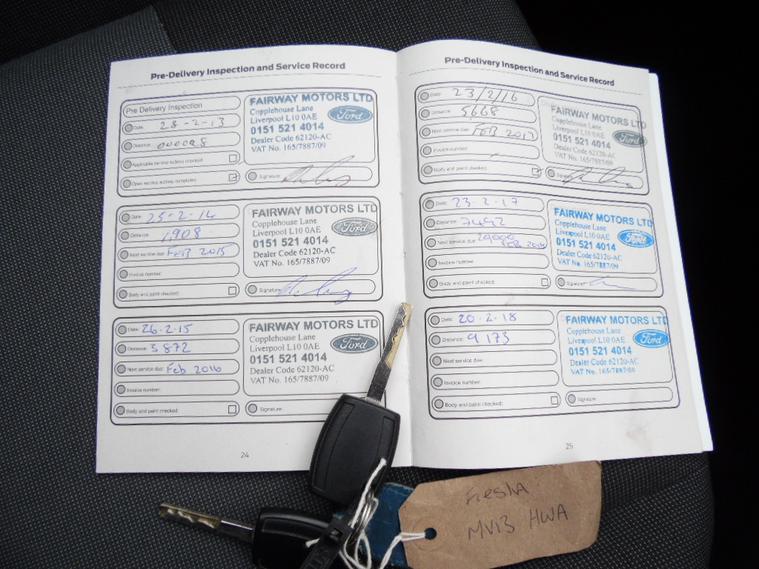 Pre-Delivery Inspection and Service Record
Pre Delivery Inspection
Date: 28-2-13
Distance: 000008
FAIRWAY MOTORS LTD
Copplehouse Lane
Liverpool L10 0AE
0151 521 4014
Dealer Code 62120-AC
VAT No. 165/7887/09
Ford
Signature:
Date: 25-2-14
Distance: 1908
Next service due: FEB 2015
Invoice number:
Body and paint checked:
FAIRWAY MOTORS LTD
Copplehouse Lane
Liverpool L10 0AE
0151 521 4014
Dealer Code 62120-AC
VAT No. 165/7887/09
Ford
Signature:
Date: 26-2-15
Distance: 3872
Next service due: Feb 2016
Invoice number:
Body and paint checked:
FAIRWAY MOTORS LTD
Copplehouse Lane
Liverpool L10 0AE
0151 521 4014
Dealer Code 62120-AC
VAT No. 165/7887/09
Ford
Signature:
24
Pre-Delivery Inspection and Service Record
Date: 23/2/16
Distance: 5668
Next service due: FEB 2017
Invoice number:
Body and paint checked:
FAIRWAY MOTORS LTD
Copplehouse Lane
Liverpool L10 0AE
0151 521 4014
Dealer Code 62120-AC
VAT No. 165/7887/09
Ford
Signature:
Date: 23.2.17
Distance: 7492
Next service due:
Invoice number:
Body and paint checked:
FAIRWAY MOTORS LTD
Copplehouse Lane
Liverpool L10 0AE
0151 521 4014
Dealer Code 62120-AC
VAT No. 165/7887/09
Ford
Signature:
Date: 20.2.18
Distance: 9173
Next service due:
Invoice number:
Body and paint checked:
FAIRWAY MOTORS LTD
Copplehouse Lane
Liverpool L10 0AE
0151 521 4014
Dealer Code 62120-AC
VAT No. 165/7887/09
Ford
Signature:
25
FiestA
MV13 HWA